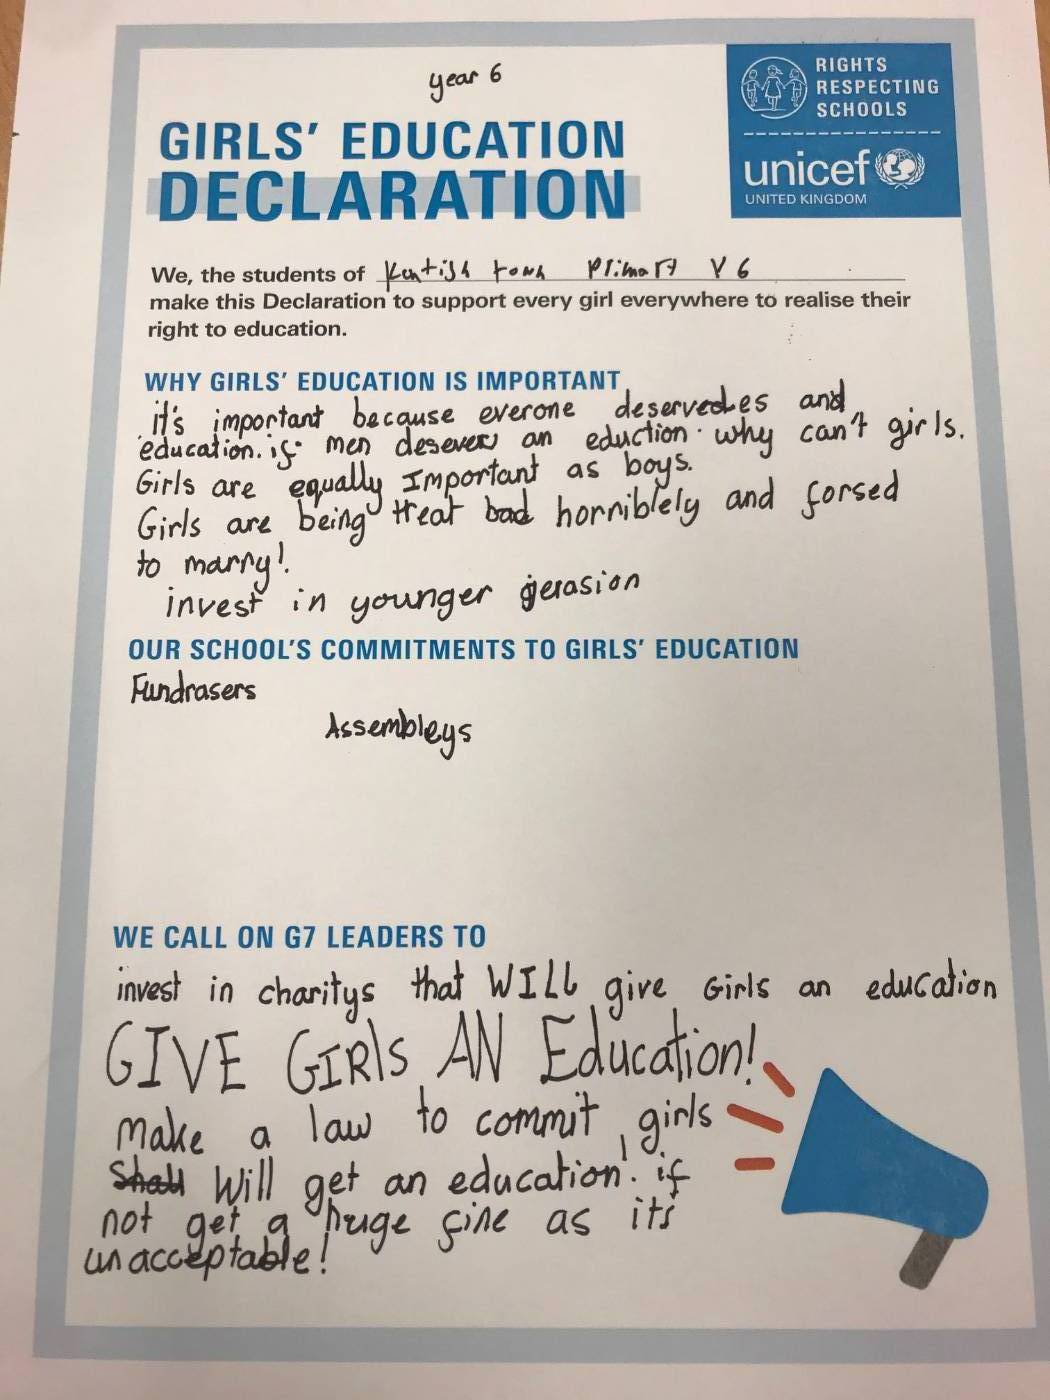 year 6
RIGHTS
RESPECTING
SCHOOLS
unicef
UNITED KINGDOM
GIRLS' EDUCATION
DECLARATION
We, the students of Kentish town Primary Y6
make this Declaration to support every girl everywhere to realise their
right to education.
WHY GIRLS' EDUCATION IS IMPORTANT
it's important because everone deserves and
education. if men desever an eduction. why can't girls.
Girls are equally Important as boys.
Girls are being treat bad horriblely and forsed
to marry!
invest in younger gerasion
OUR SCHOOL'S COMMITMENTS TO GIRLS' EDUCATION
Fundrasers
Assembleys
WE CALL ON G7 LEADERS TO
invest in charitys that WILL give Girls an education
GIVE GIRls AN Education!
Make a law to commit girls
Shall Will get an education! if
not get a huge fine as its
unacceptable!